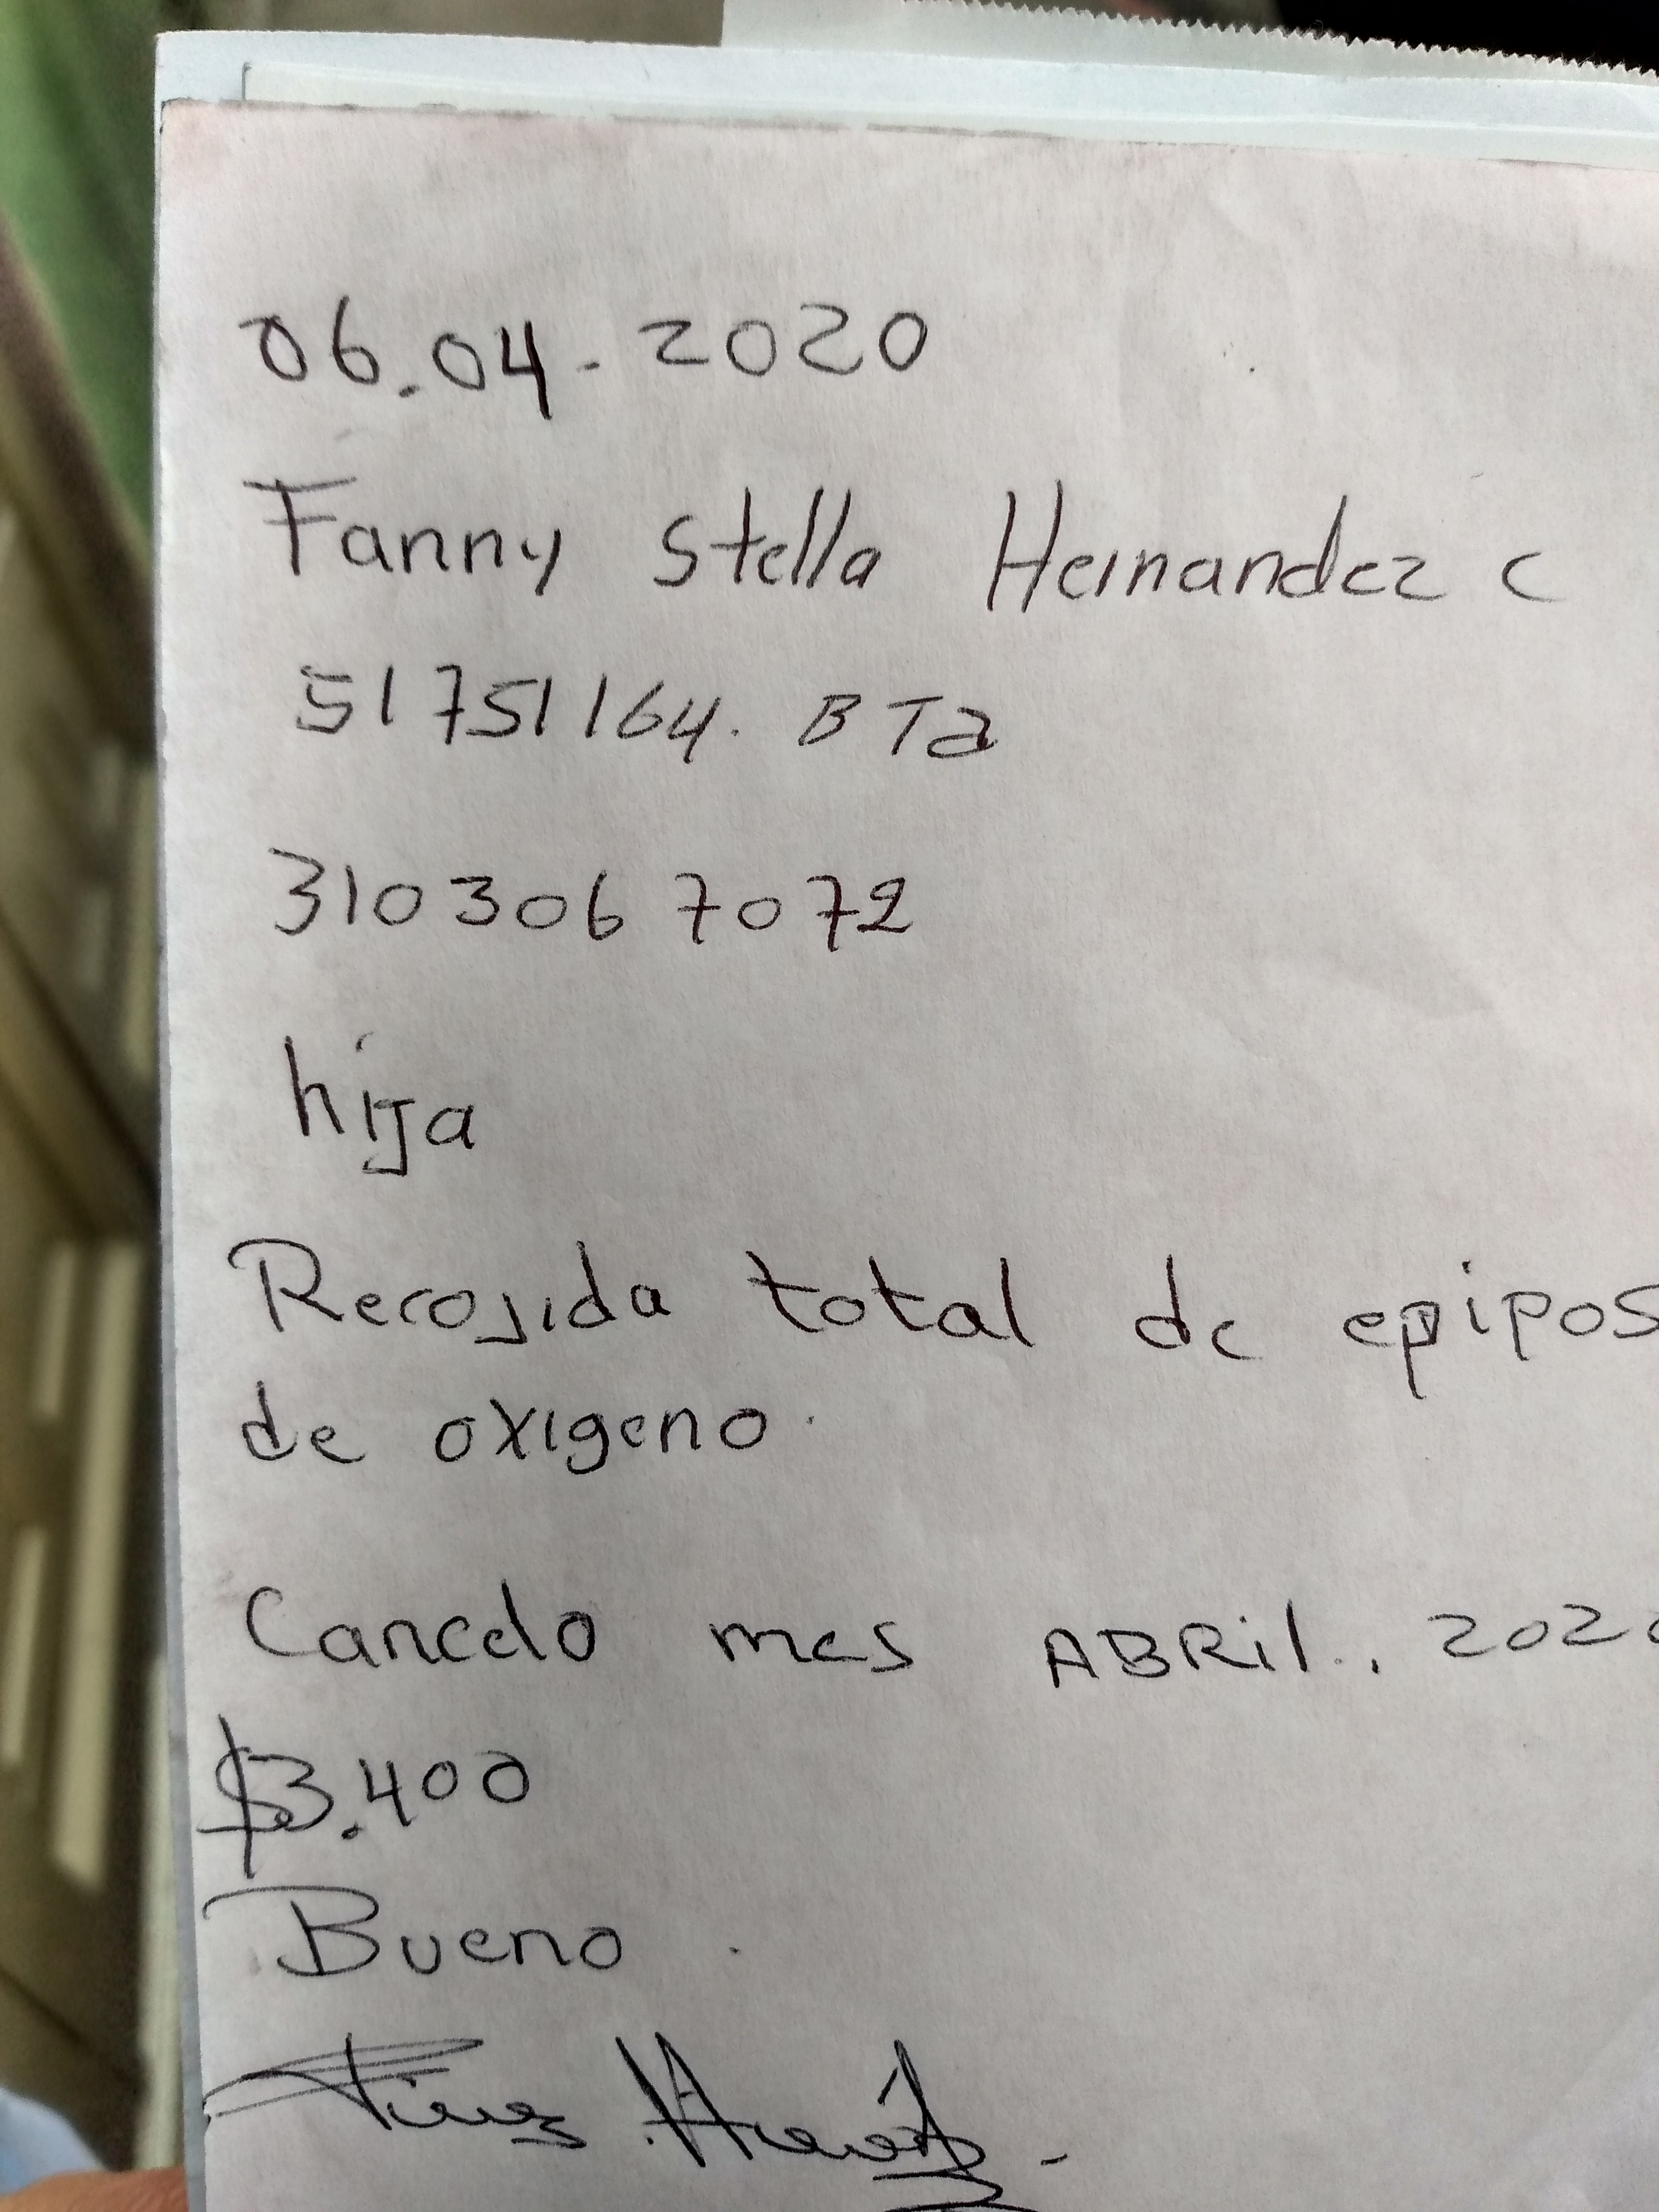 06.04-2020
Fanny Stella Hernandez C
51751164. BTa
310 306 7072
hija
Recojida total de epipos
de oxigeno.
Cancelo mes ABRil., 202
$3.400
Bueno.